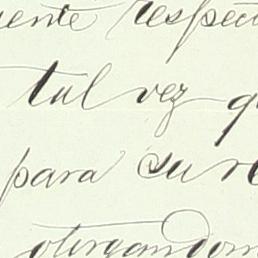 uente respecu
tul vez q
para su re
otorgandom